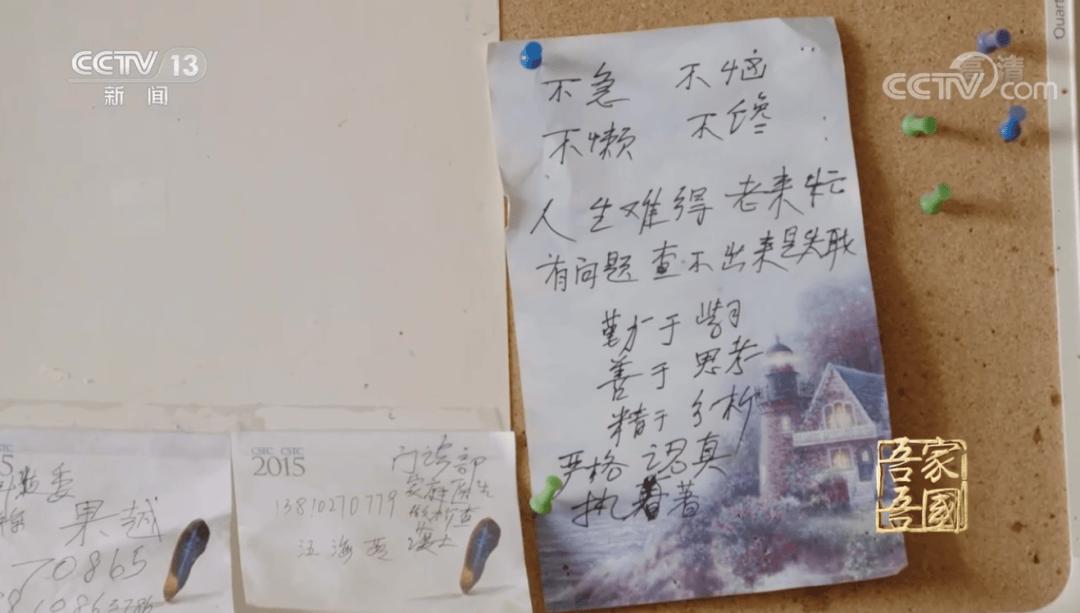 CCTV 13
新闻
CCTV.com
高清
Quart
不急 不恼
不懒 不馋
人生难得老来忙
有问题查不出来是失职
勤于学习
善于思考
精于分析
严格认真
执着
吾家
吾国
5
果越
70865
CSTC CSTC
2015
门诊部
家庭医生
13810270779